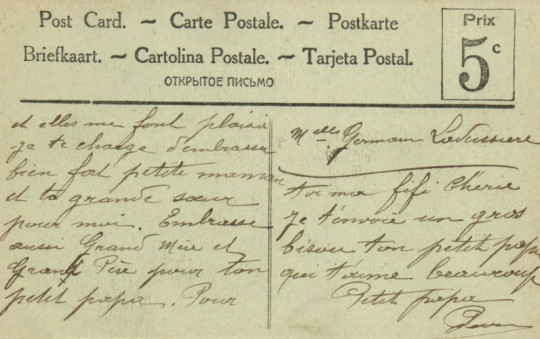 Post Card. ~ Carte Postale. ~ Postkarte
Briefkaart. ~ Cartolina Postale. ~ Tarjeta Postal.
ОТКРЫТОЕ ПИСЬМО
Prix
5c
et elles me font plaisir
je te charge d'embrasser
bien fort petite maman
et ta grande sœur
pour moi. Embrasse
aussi Grand Mère et
Grand Père pour ton
petit papa. Pour
Melle Germain
toi ma fifi Chérie
je t'envoie un gros
bisou ton petit papa
qui t'aime beaucoup
Petit papa